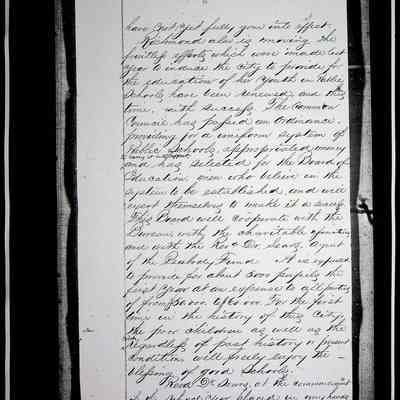 have not yet fully gone into effect.
Richmond also is moving. The
fruitless efforts which were made last
year to induce the City to provide for
the education of her Youth in Public
Schools have been renewed, and this
time, with success. The Common
Council has passed an Ordinance
providing for a uniform system of
Public Schools, appropriated money
to carry it
and has selected for the Board of
Education, men who believe in the
system to be established, and will
exert themselves to make it a success.
This Board will cooperate with the
Bureau, with the charitable
and with the Rev. Dr. Sears, Agent
of the Peabody Fund. It is proposed
to provide for about 5000 pupils the
first year at an expense to all parties
of from $50.000. to $60.000. For the first
time in the history of this City,
the poor children as well as the
Regardless of past history or present
condition will freely enjoy the
blessing of good Schools.
Revd. Dr. Sears, at the commencement
of the School Year placed in my hands